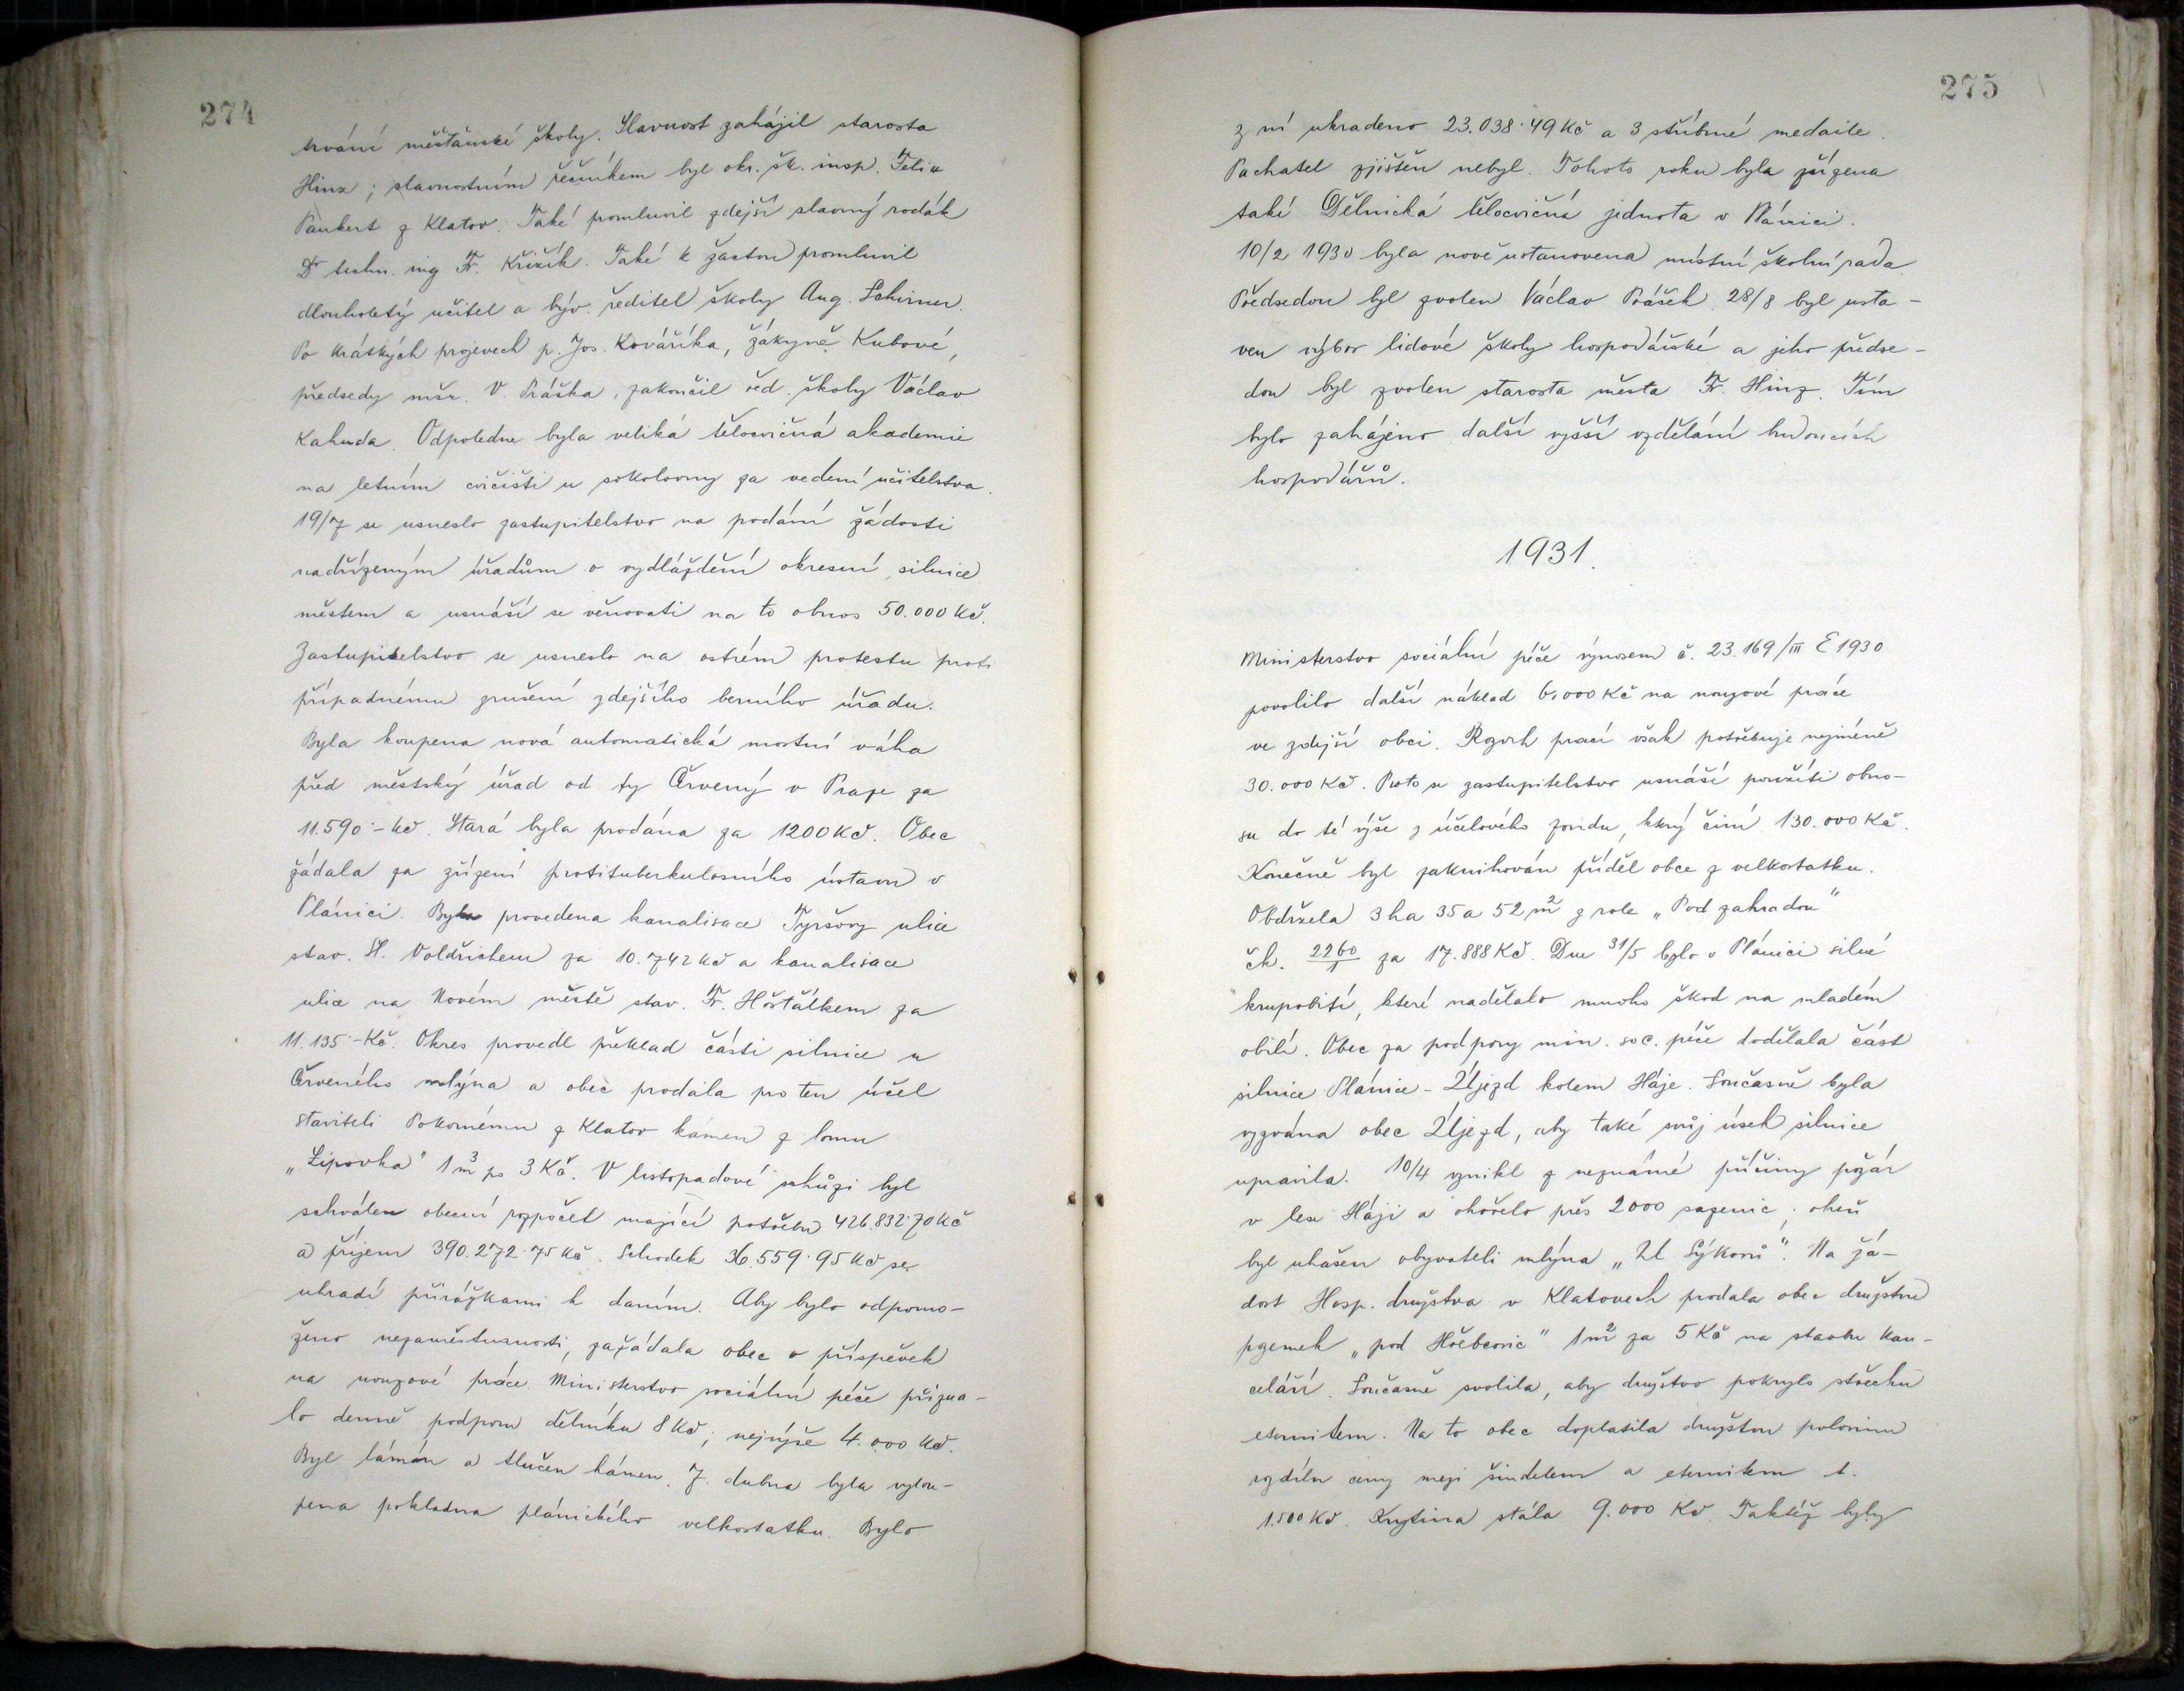 274
trvání měšťanské školy. Slavnost zahájil starosta
Hinz; slavnostním řečníkem byl okr. šk. insp. Felix
Paukert z Klatov. Také promluvil zdejší slavný rodák
Dr techn. ing Fr. Křižík. Také k žactvu promluvil
dlouholetý učitel a býv. ředitel školy Aug. Schirner.
Po krátkých projevech p. Jos. Kováříka, žákyně Kubové,
předsedy mšr. V. Práška, zakončil řed. školy Václav
Kahuda. Odpoledne byla veliká tělocvičná akademie
na letním cvičišti u sokolovny za vedení učitelstva.
19/7 se usneslo zastupitelstvo na podání žádosti
nadřízeným úřadům o vydláždění okresní silnice
městem a usnáší se věnovati na to obnos 50.000 Kč.
Zastupitelstvo se usneslo na ostrém protestu proti
případnému zrušení zdejšího berního úřadu.
Byla koupena nová automatická mostní váha
před městský úřad od fy Červený v Praze za
11.590·- Kč. Stará byla prodána za 1200 Kč. Obec
žádala za zřízení protituberkulosního ústavu v
Plánici. Byla provedena kanalisace Tyršovy ulice
stav. St. Voldřichem za 10.742 Kč a kanalisace
ulice na Novém městě stav. Fr. Hošťálkem za
11.135·- Kč. Okres provedl překlad části silnice u
Červeného mlýna a obec prodala pro ten účel
staviteli Pokornému z Klatov kámen z lomu
„Lipovka" 1 m3 po 3 Kč. V listopadové schůzi byl
schválen obecní rozpočet mající potřebu 426.832·70 Kč
a příjem 390.272·75 Kč. Schodek 36.559·95 Kč se
uhradí přirážkami k daním. Aby bylo odpomo-
ženo nezaměstnanosti, zažádala obec o příspěvek
na nouzové práce. Ministerstvo sociální péče přizna-
lo denně podporu dělníku 8 Kč; nejvýše 4.000 Kč.
Byl lámán a tlučen kámen. 7. dubna byla vylou-
pena pokladna plánického velkostatku. Bylo
275
z ní ukradeno 23.038·49 Kč a 3 stříbrné medaile.
Pachatel zjištěn nebyl. Tohoto roku byla zřízena
také Dělnická tělocvičná jednota v Plánici.
10/2 1930 byla nově ustanovena místní školní rada
Předsedou byl zvolen Václav Prášek. 28/8 byl usta-
ven výbor lidové školy hospodářské a jeho předse-
dou byl zvolen starosta města Fr. Hinz. Tím
bylo zahájeno další vyšší vzdělání budoucích
hospodářů.
1931.
Ministerstvo sociální péče výnosem č. 23.169/III E 1930
povolilo další náklad 6.000 Kč na nouzové práce
ve zdejší obci. Rozvrh prací však potřebuje nejméně
30.000 Kč. Proto se zastupitelstvo usnáší použíti obno-
su do té výše z účelového fondu, který činí 130.000 Kč.
Konečně byl zaknihován příděl obce z velkostatku.
Obdržela 3 ha 35 a 52 m2 z role „Pod zahradou"
čk. 2260/1 za 17.888 Kč. Dne 31/5 bylo v Plánici silné
krupobití, které nadělalo mnoho škod na mladém
obilí. Obec za podpory min. soc. péče dodělala část
silnice Plánice - Újezd kolem Háje. Současně byla
vyzvána obec Újezd, aby také svůj úsek silnice
upravila. 10/4 vznikl z neznámé příčiny požár
v lese Háji a ohořelo přes 2000 sazenic; oheň
byl uhašen obyvateli mlýna „U Sýkorů". Na žá-
dost Hosp. družstva v Klatovech prodala obec družstvu
pozemek „pod Hřebcovic" 1 m2 za 5 Kč na stavbu kan-
celáří. Současně svolila, aby družstvo pokrylo střechu
eternitem. Na to obec doplatila družstvu polovinu
rozdílu ceny mezi šindelem a eternitem t.
1.500 Kč. Krytina stála 9.000 Kč. Taktéž byly